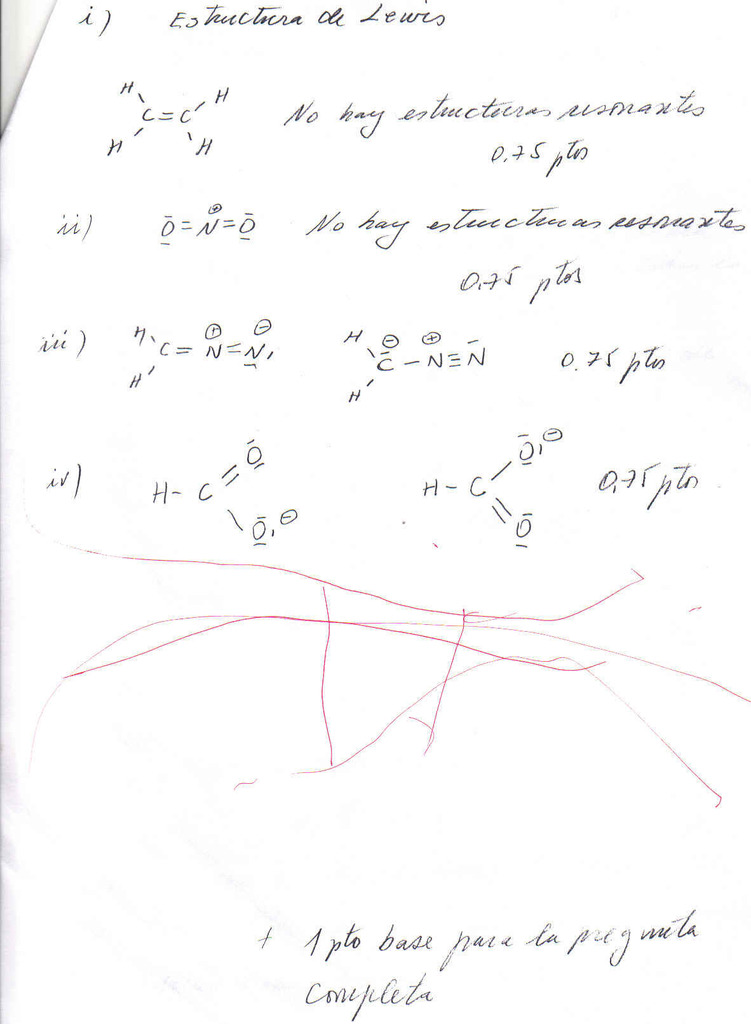 i) Estructura de Lewis
H H
C=C No hay estructuras resonantes
H H
0.75 ptos
⊕
ii) O=N=O No hay estructuras resonantes
0,75 ptos
H ⊕ ⊖ H ⊖ ⊕
iii) C=N=N, C-N≡N 0.75 ptos
H H
O O,⊖
iv) H-C H-C 0,75 ptos
O,⊖ O
+ 1 pto base para la pregunta
completa